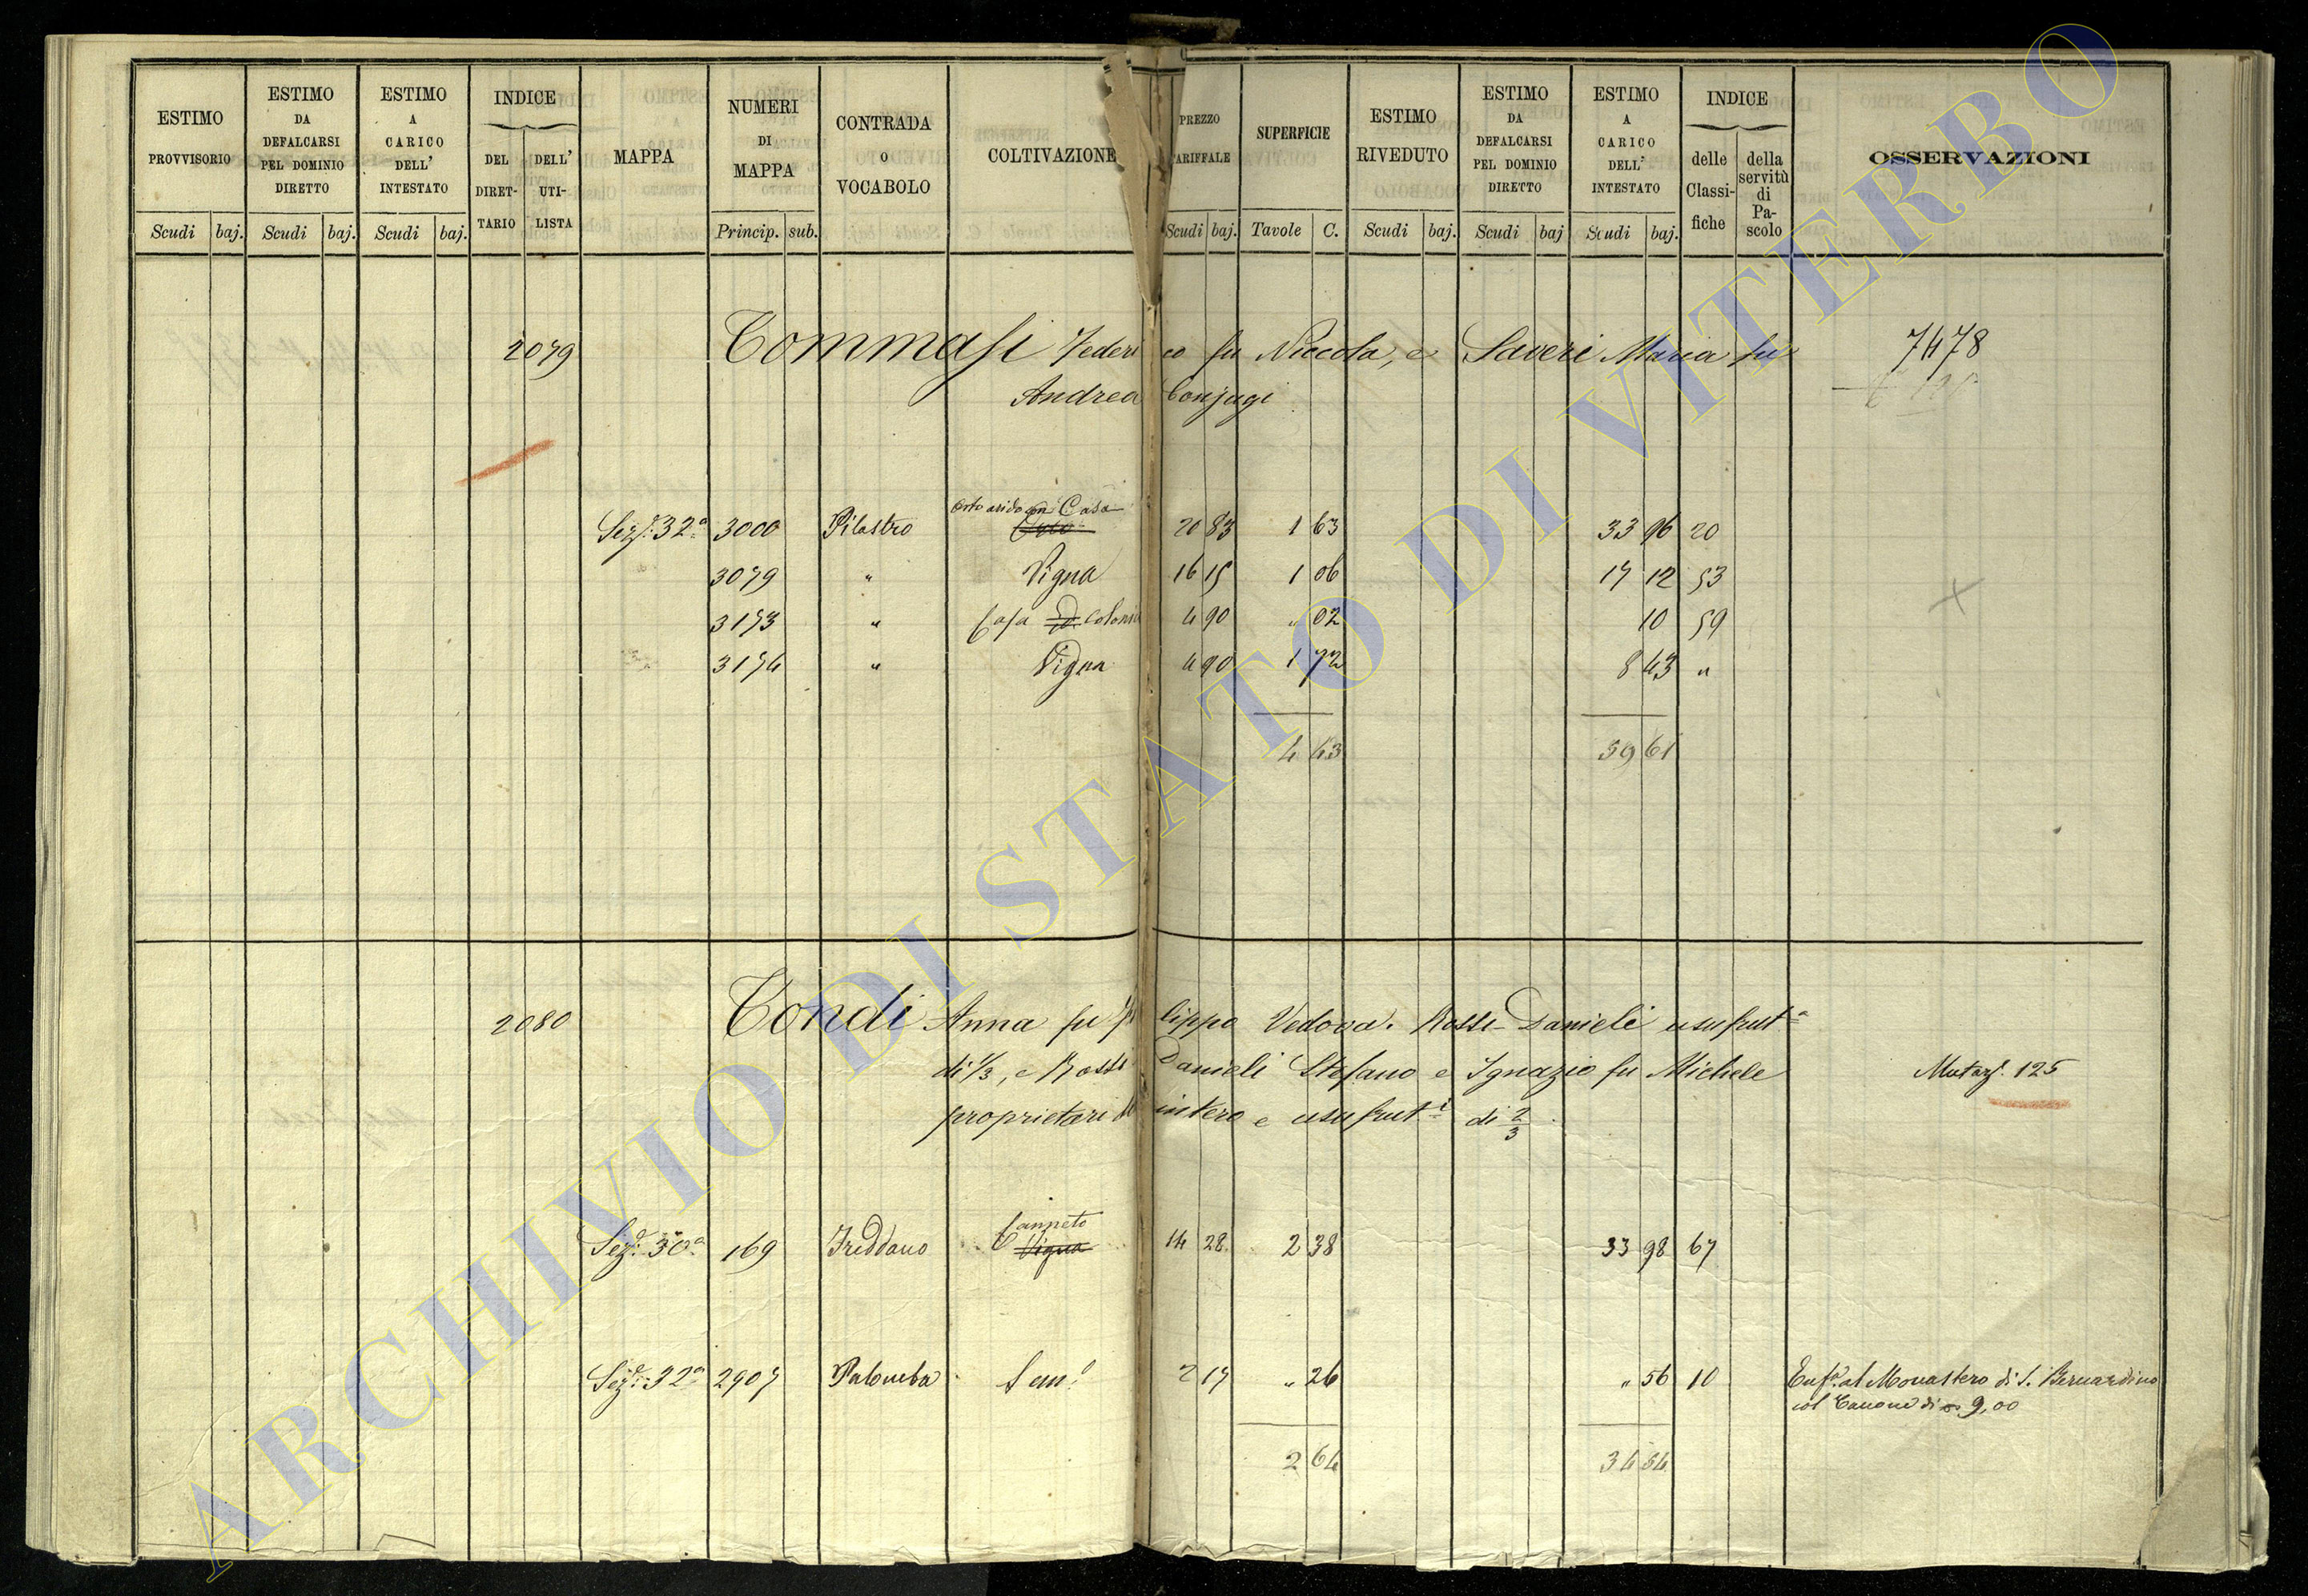 ESTIMO PROVVISORIO
ESTIMO DA DEFALCARSI PEL DOMINIO DIRETTO
ESTIMO A CARICO DELL' INTESTATO
INDICE
DEL DIRET-TARIO
DELL' UTI-LISTA
MAPPA
NUMERI DI MAPPA
CONTRADA O VOCABOLO
COLTIVAZIONE
PREZZO TARIFFALE
SUPERFICIE
ESTIMO RIVEDUTO
ESTIMO DA DEFALCARSI PEL DOMINIO DIRETTO
ESTIMO A CARICO DELL' INTESTATO
INDICE
delle Classi-fiche
della servitù di Pa-scolo
OSSERVAZIONI
Scudi baj. Scudi baj. Scudi baj. Princip. sub. Scudi baj. Tavole C. Scudi baj. Scudi baj Scudi baj.
2079 Tommasi Federico fu Niccola, e Saveri Maria fu 7478
Andrea Conjugi
Orto arido con Casa
Sez. 32ª 3000 Pilastro 20 83 1 63 33 96 20
3079 " Vigna 16 15 1 06 17 12 53
3173 " Casa colonia 4 90 " 02 10 59
3174 " Vigna 4 90 1 72 8 43 "
4 43 59 61
2080 Tondi Anna fu Filippo Vedova. Rossi Danieli usufrutª
di 1/3, e Rossi Danieli Stefano e Ignazio fu Michele Mutaz. 125
proprietari intero e usufruti di 2/3
Canneto
Sez. 30ª 169 Freddano Vigna 14 28 2 38 33 98 67
Sez. 32ª 2907 Palomba Semo 2 17 " 26 " 56 10 Enf. al Monastero di S. Bernardino
col Canone di 9,00
2 64 34 54
ARCHIVIO DI STATO DI VITERBO